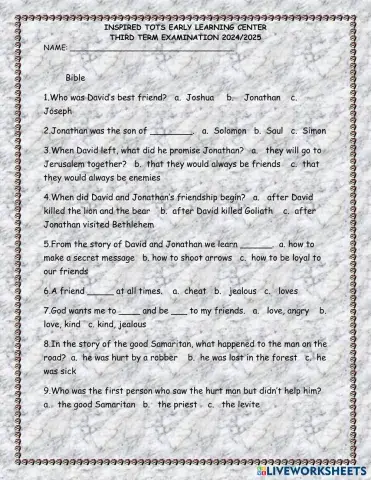 INSPIRED TOTS EARLY LEARNING CENTER
THIRD TERM EXAMINATION 2024/2025
NAME: ___________________________
Bible
1.Who was David's best friend? a. Joshua b. Jonathan c.
Joseph
2.Jonathan was the son of ________. a. Solomon b. Saul c. Simon
3.When David left, what did he promise Jonathan? a. they will go to
Jerusalem together? b. that they would always be friends c. that
they would always be enemies
4.When did David and Jonathan's friendship begin? a. after David
killed the lion and the bear b. after David killed Goliath c. after
Jonathan visited Bethlehem
5.From the story of David and Jonathan we learn ______. a. how to
make a secret message b. how to shoot arrows c. how to be loyal to
our friends
6.A friend _____ at all times. a. cheat b. jealous c. loves
7.God wants me to ____ and be ___ to my friends. a. love, angry b.
love, kind c. kind, jealous
8.In the story of the good Samaritan, what happened to the man on the
road? a. he was hurt by a robber b. he was lost in the forest c. he
was sick
9.Who was the first person who saw the hurt man but didn't help him?
a. the good Samaritan b. the priest c. the levite
LIVEWORKSHEETS